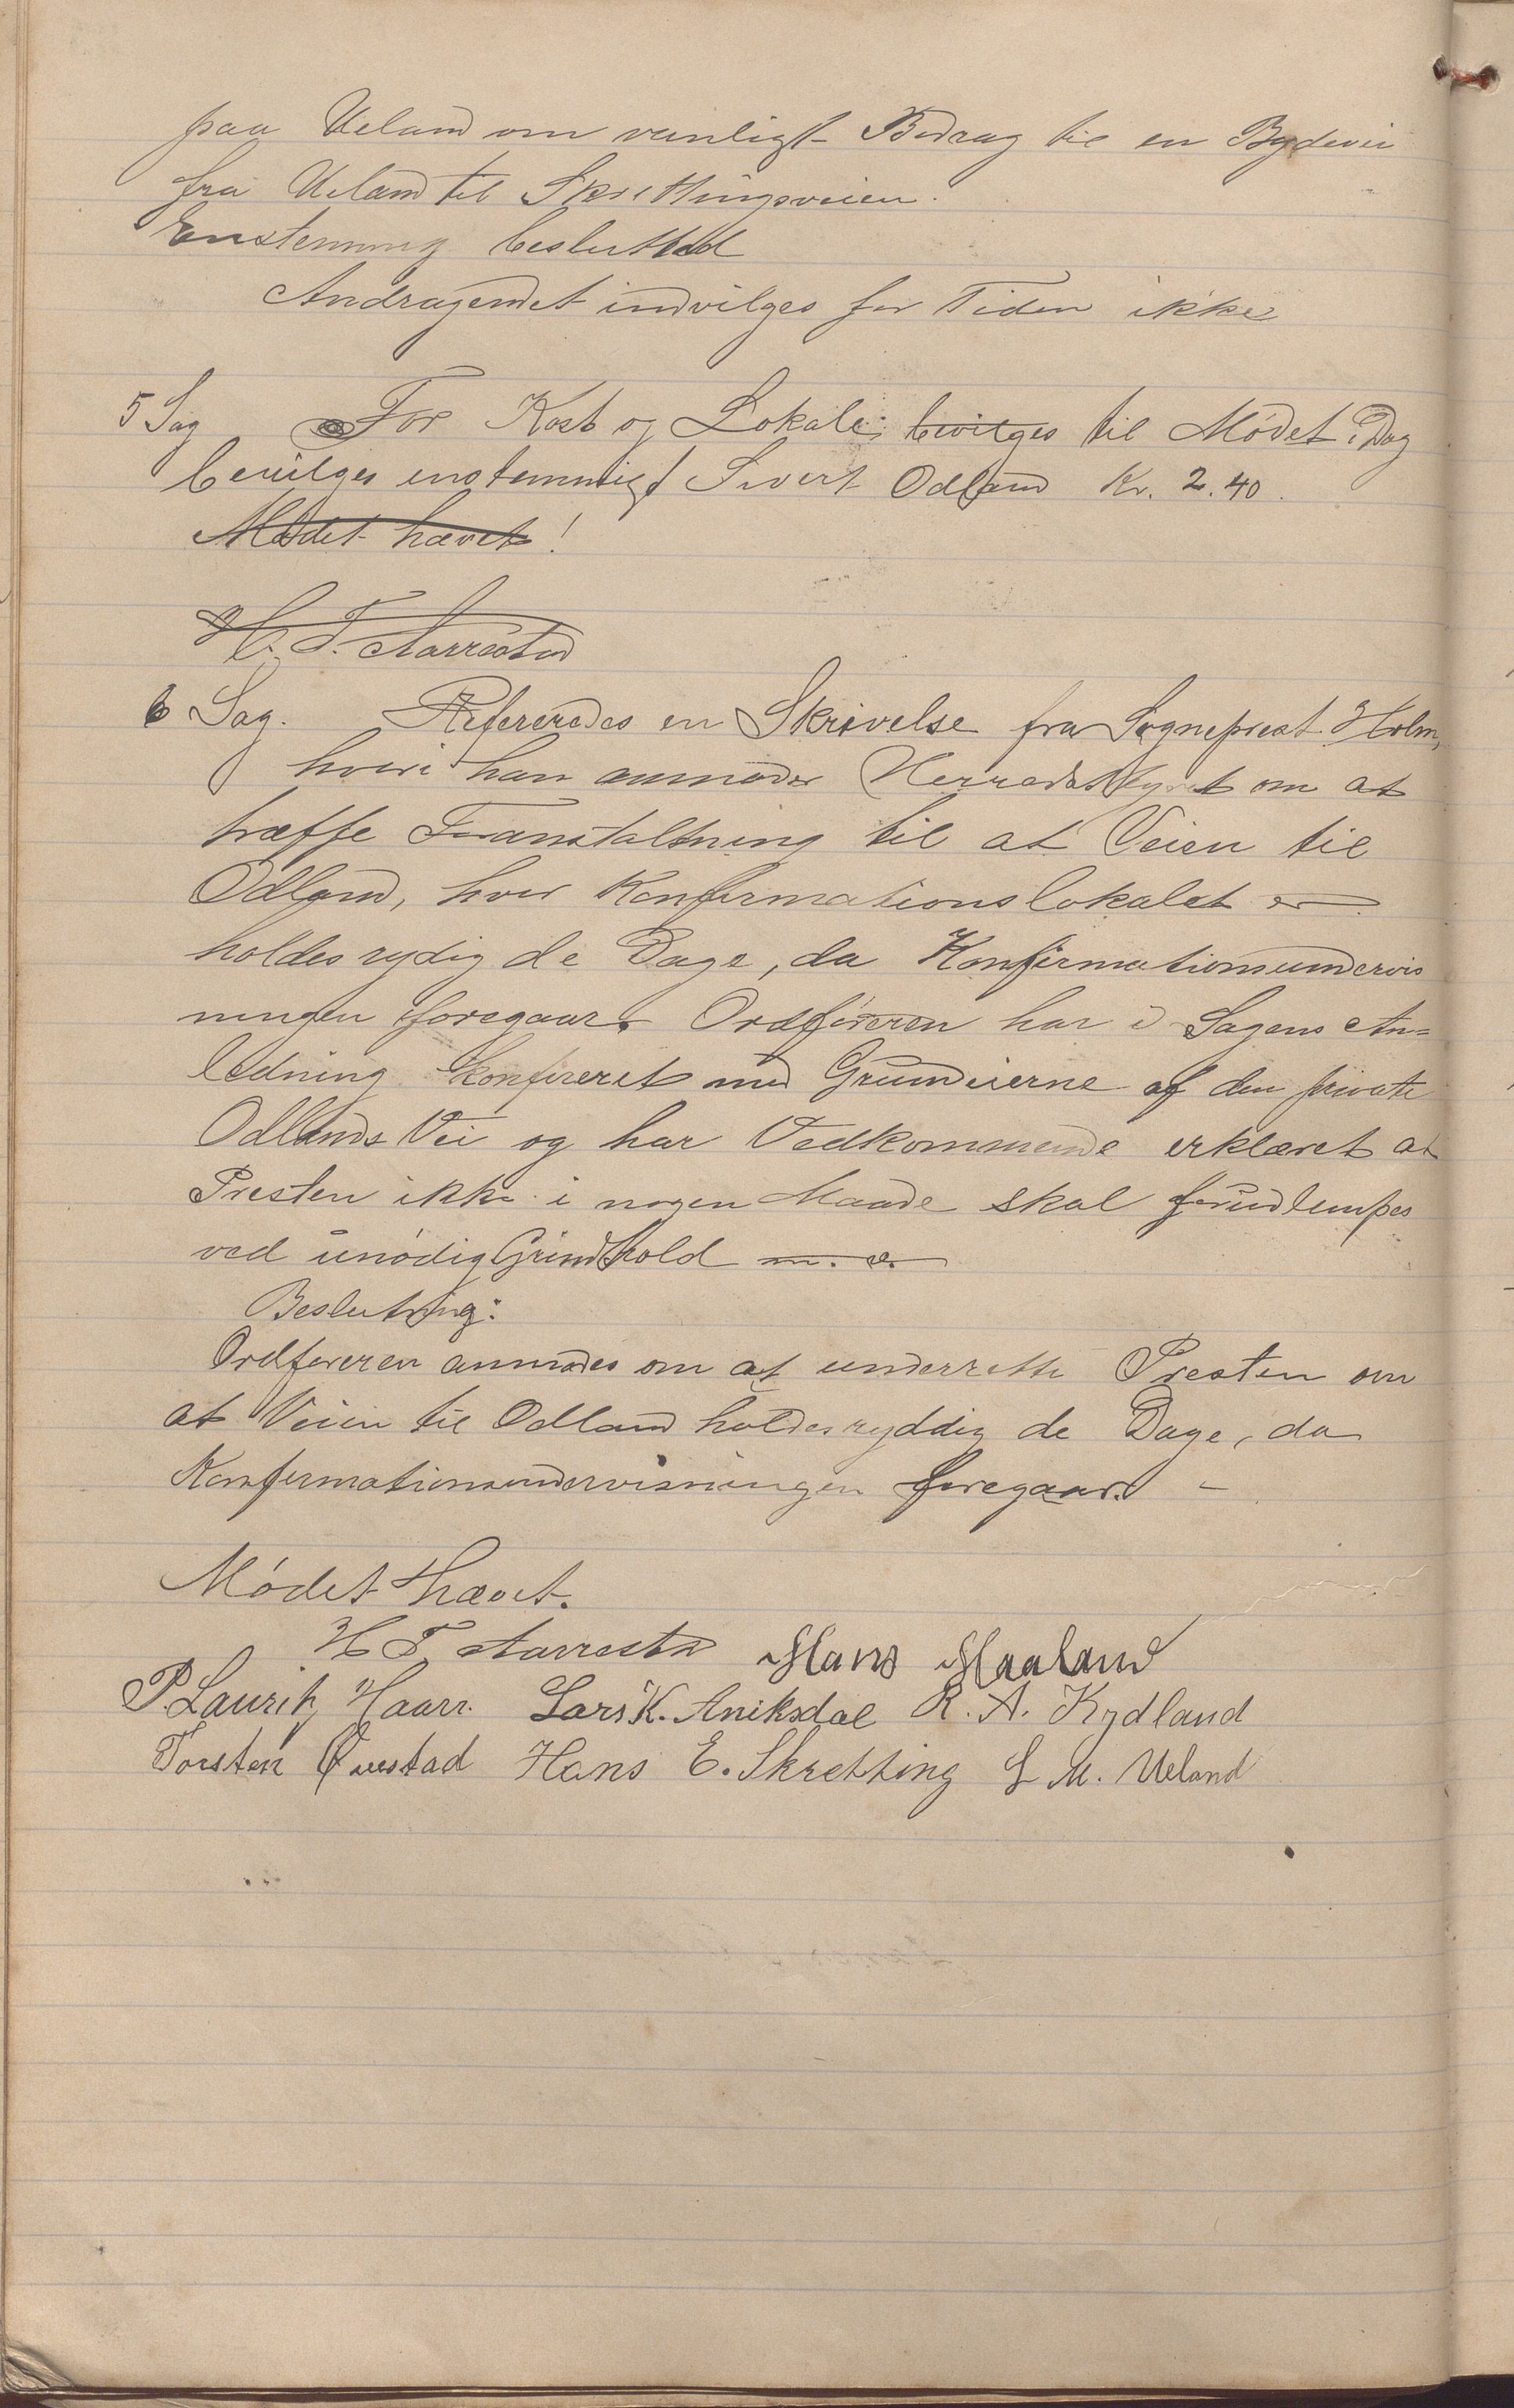 paa Ueland om vanligt Bidrag til en Bygdevei
fra Ueland til Skrettingsveien.
Enstemmig besluttet
Andragendet indvilges for Tiden ikke
5 Sag For Kost og Lokale bevilges til Mødet i Dag
bevilges enstemmigt Sivert Odland Kr. 2.40.
Mødet hævet!
H. T. Aarrestad
6 Sag. Refereredes en Skrivelse fra Sogneprest Holm,
hvori han anmoder Herredsstyret om at
træffe Foranstaltning til at Veien til
Odland, hvor Konfirmationslokalet er
holdes rydig de Dage, da Konfirmationsundervis
ningen foregaar. Ordføreren har i Sagens An=
ledning konfereret med Grundeierne af den private
Odlands Vei og har Vedkommende erklæret at
Presten ikke i nogen Maade skal forulempes
ved unødig Grindhold m. v.
Beslutning:
Ordføreren anmodes om at underrette Presten om
at Veien til Odland holdes ryddig de Dage, da
Konfirmationsundervisningen foregaar. -
Mødet hævet.
H T Aarrestad Hans Maaland
P. Lauritz Haarr. Lars K. Aniksdal R. A. Kydland
Torsten Qvestad Hans E. Skretting L M. Ueland